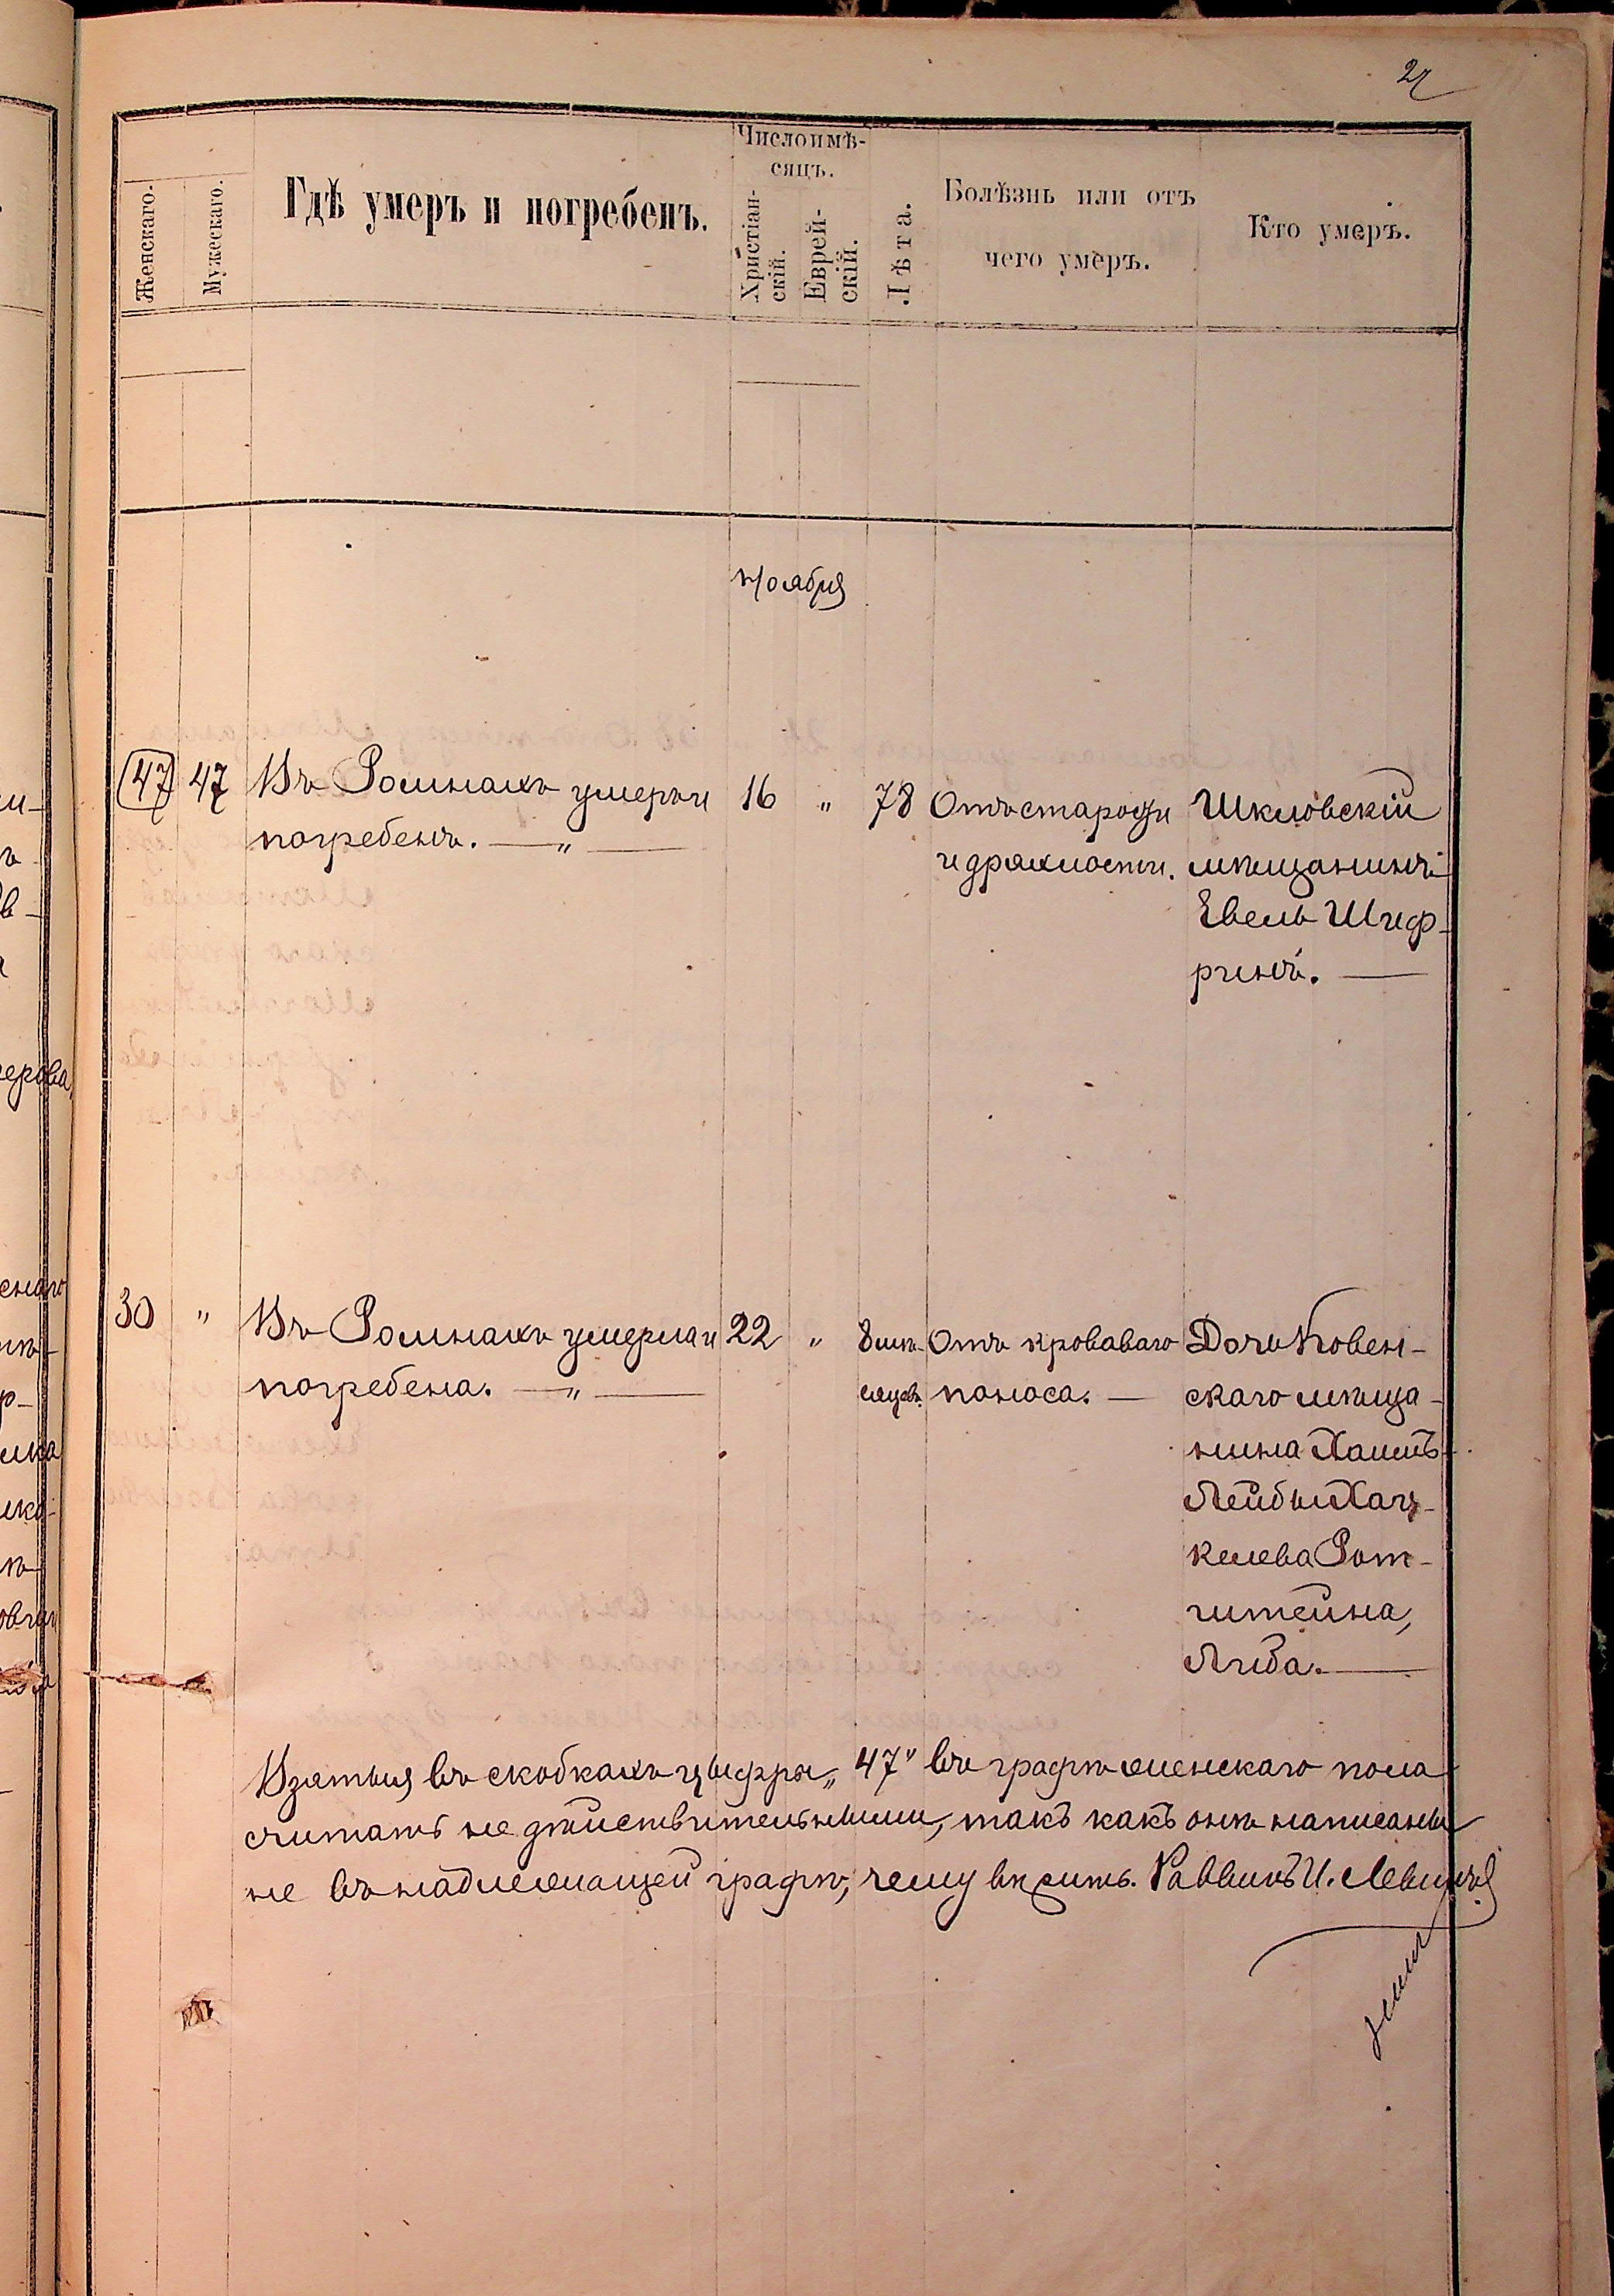 27
Женскаго.
Мужескаго.
Гдѣ умеръ и погребенъ.
Число и мѣ-
сяцъ.
Христіан-
скій.
Еврей-
скій.
Лѣта.
Болѣзнь или отъ
чего умеръ.
Кто умеръ.
Ноября
(47) 47 Въ Ромнахъ умеръ и 16 " 78 Отъ старости Шкловскій
погребенъ. — " — и дряхлости. мѣщанинъ
Евель Шиф-
ринъ. —
30 " Въ Ромнахъ умерла и 22 " 8 мѣ- Отъ кроваваго Дочь Ковен-
погребена. — " — сяцевъ. поноса. — скаго мѣща-
нина Хаимъ-
Лейбы Хац-
келева Рот-
штейна,
Либа. —
Взятыя въ скобкахъ цыфры „47" въ графѣ женскаго пола
считать не дѣйствительными, такъ какъ онѣ написаны
не въ надлежащей графѣ, чему вѣрить. Раввинъ И.